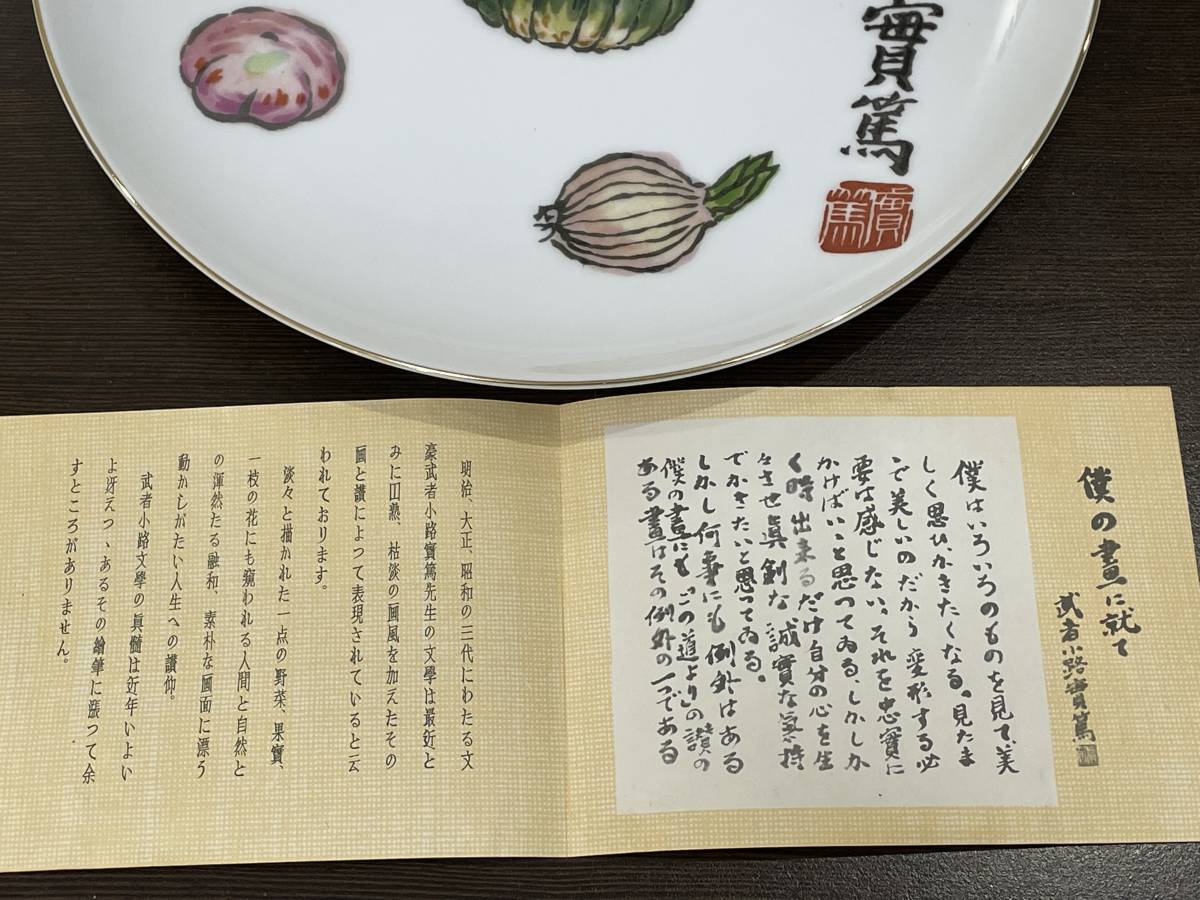 實篤
實篤
僕の畫に就て
武者小路實篤
僕はいろいろのものを見て、美
しく思ひ、かきたくなる。見たま
こで美しいのだから変形する必
要は感じない、それを忠實に
かけばいゝと思つてゐる、しかしか
く時出来るだけ自分の心を生
々させ眞剣な、誠實な気持
でかきたいと思つてゐる。
しかし何事にも例外はある
僕の畫にも「この道より」の讃の
ある畫はその例外の一つである
明治、大正、昭和の三代にわたる文
豪武者小路實篤先生の文學は最近と
みに円熟、枯淡の画風を加えたその
画と讃によつて表現されていると云
われております。
淡々と描かれた一点の野菜、果實、
一枝の花にも窺われる人間と自然と
の渾然たる融和、素朴な画面に漂う
動かしがたい人生への讃仰。
武者小路文學の眞髄は近年いよい
よ冴えつゝあるその繪筆に漲つて余
すところがありません。